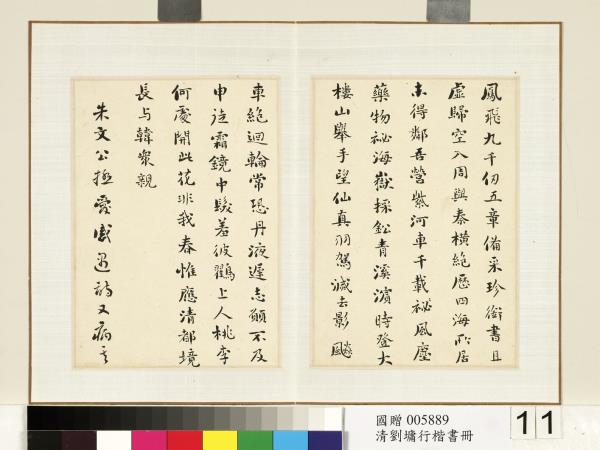 鳳飛九千仞五章備采珍銜書且
虛歸空入周與秦橫絕歷四海所居
未得鄰吾營紫河車千載落風塵
藥物祕海嶽採鉛青溪濱時登大
樓山舉手望仙真羽駕滅去影飈
車絕迴輪常恐丹液遲志願不及
申徒霜鏡中髮羞彼鶴上人桃李
何處開此花非我春惟應清都境
長与韓衆親
朱文公極愛感遇詩又病其
國贈 005889
清劉墉行楷書冊
11